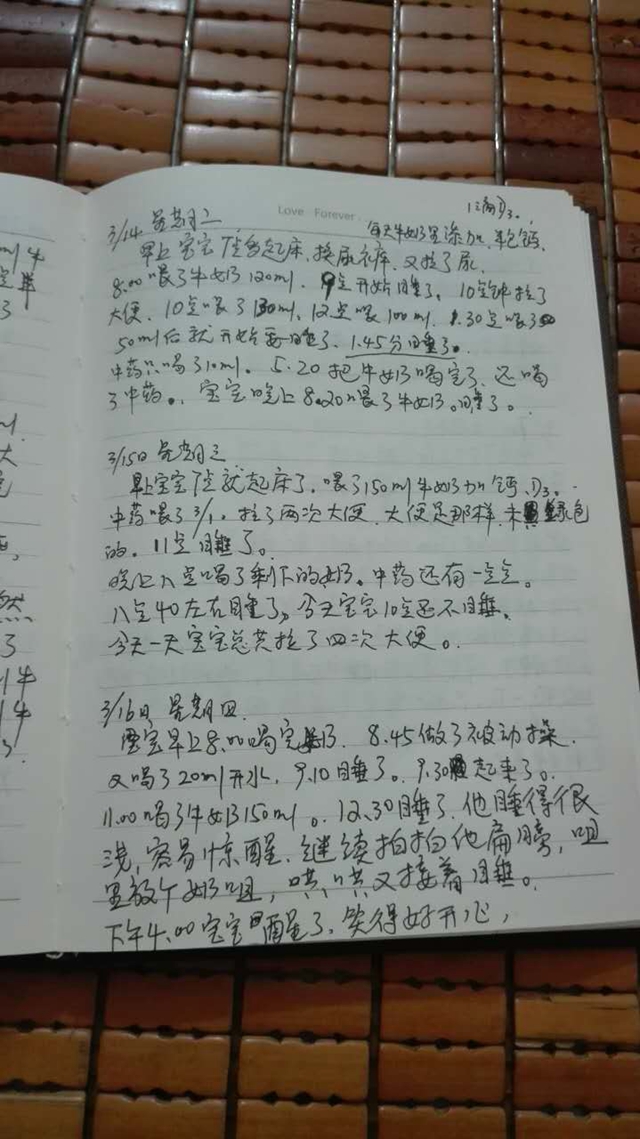 Love Forever
1滴D3.
3/14 星期二 每天牛奶里添加,
早上宝宝起床,换尿衣裤,又拉了尿,
8.00喂了牛奶120ml. 9点开始睡了, 10点钟拉了
大便, 10点喂了130ml, 12点喂100ml, 1.30点喂了
50ml后就开始要睡了, 1.45分睡了。
中药只喝了10ml。5.20把牛奶喝完了,还喝
了中药。宝宝晚上8.20喂了牛奶。睡了。
3/15日 星期三
早上宝宝就起床了,喂了150ml牛奶加钙,D3.
中药喂了3/1,拉了两次大便,大便是那样,绿色
的。11点睡了。
晚上八点喝了剩下的奶。中药还有一点点。
八点40左右睡了,今天宝宝10点还不睡,
今天一天宝宝总共拉了四次大便。
3/16日 星期四
宝宝早上8.00喝完奶, 8.45做了被动操,
又喝了20ml开水, 9.10睡了。9.30起来了。
11.00喝了牛奶150ml。12.30睡了,他睡得很
浅,容易惊醒,继续拍拍他肩膀,咀
里放个奶咀,哄哄又接着睡。
下午4.00宝宝醒了,笑得好开心,
ml牛
大
然
了